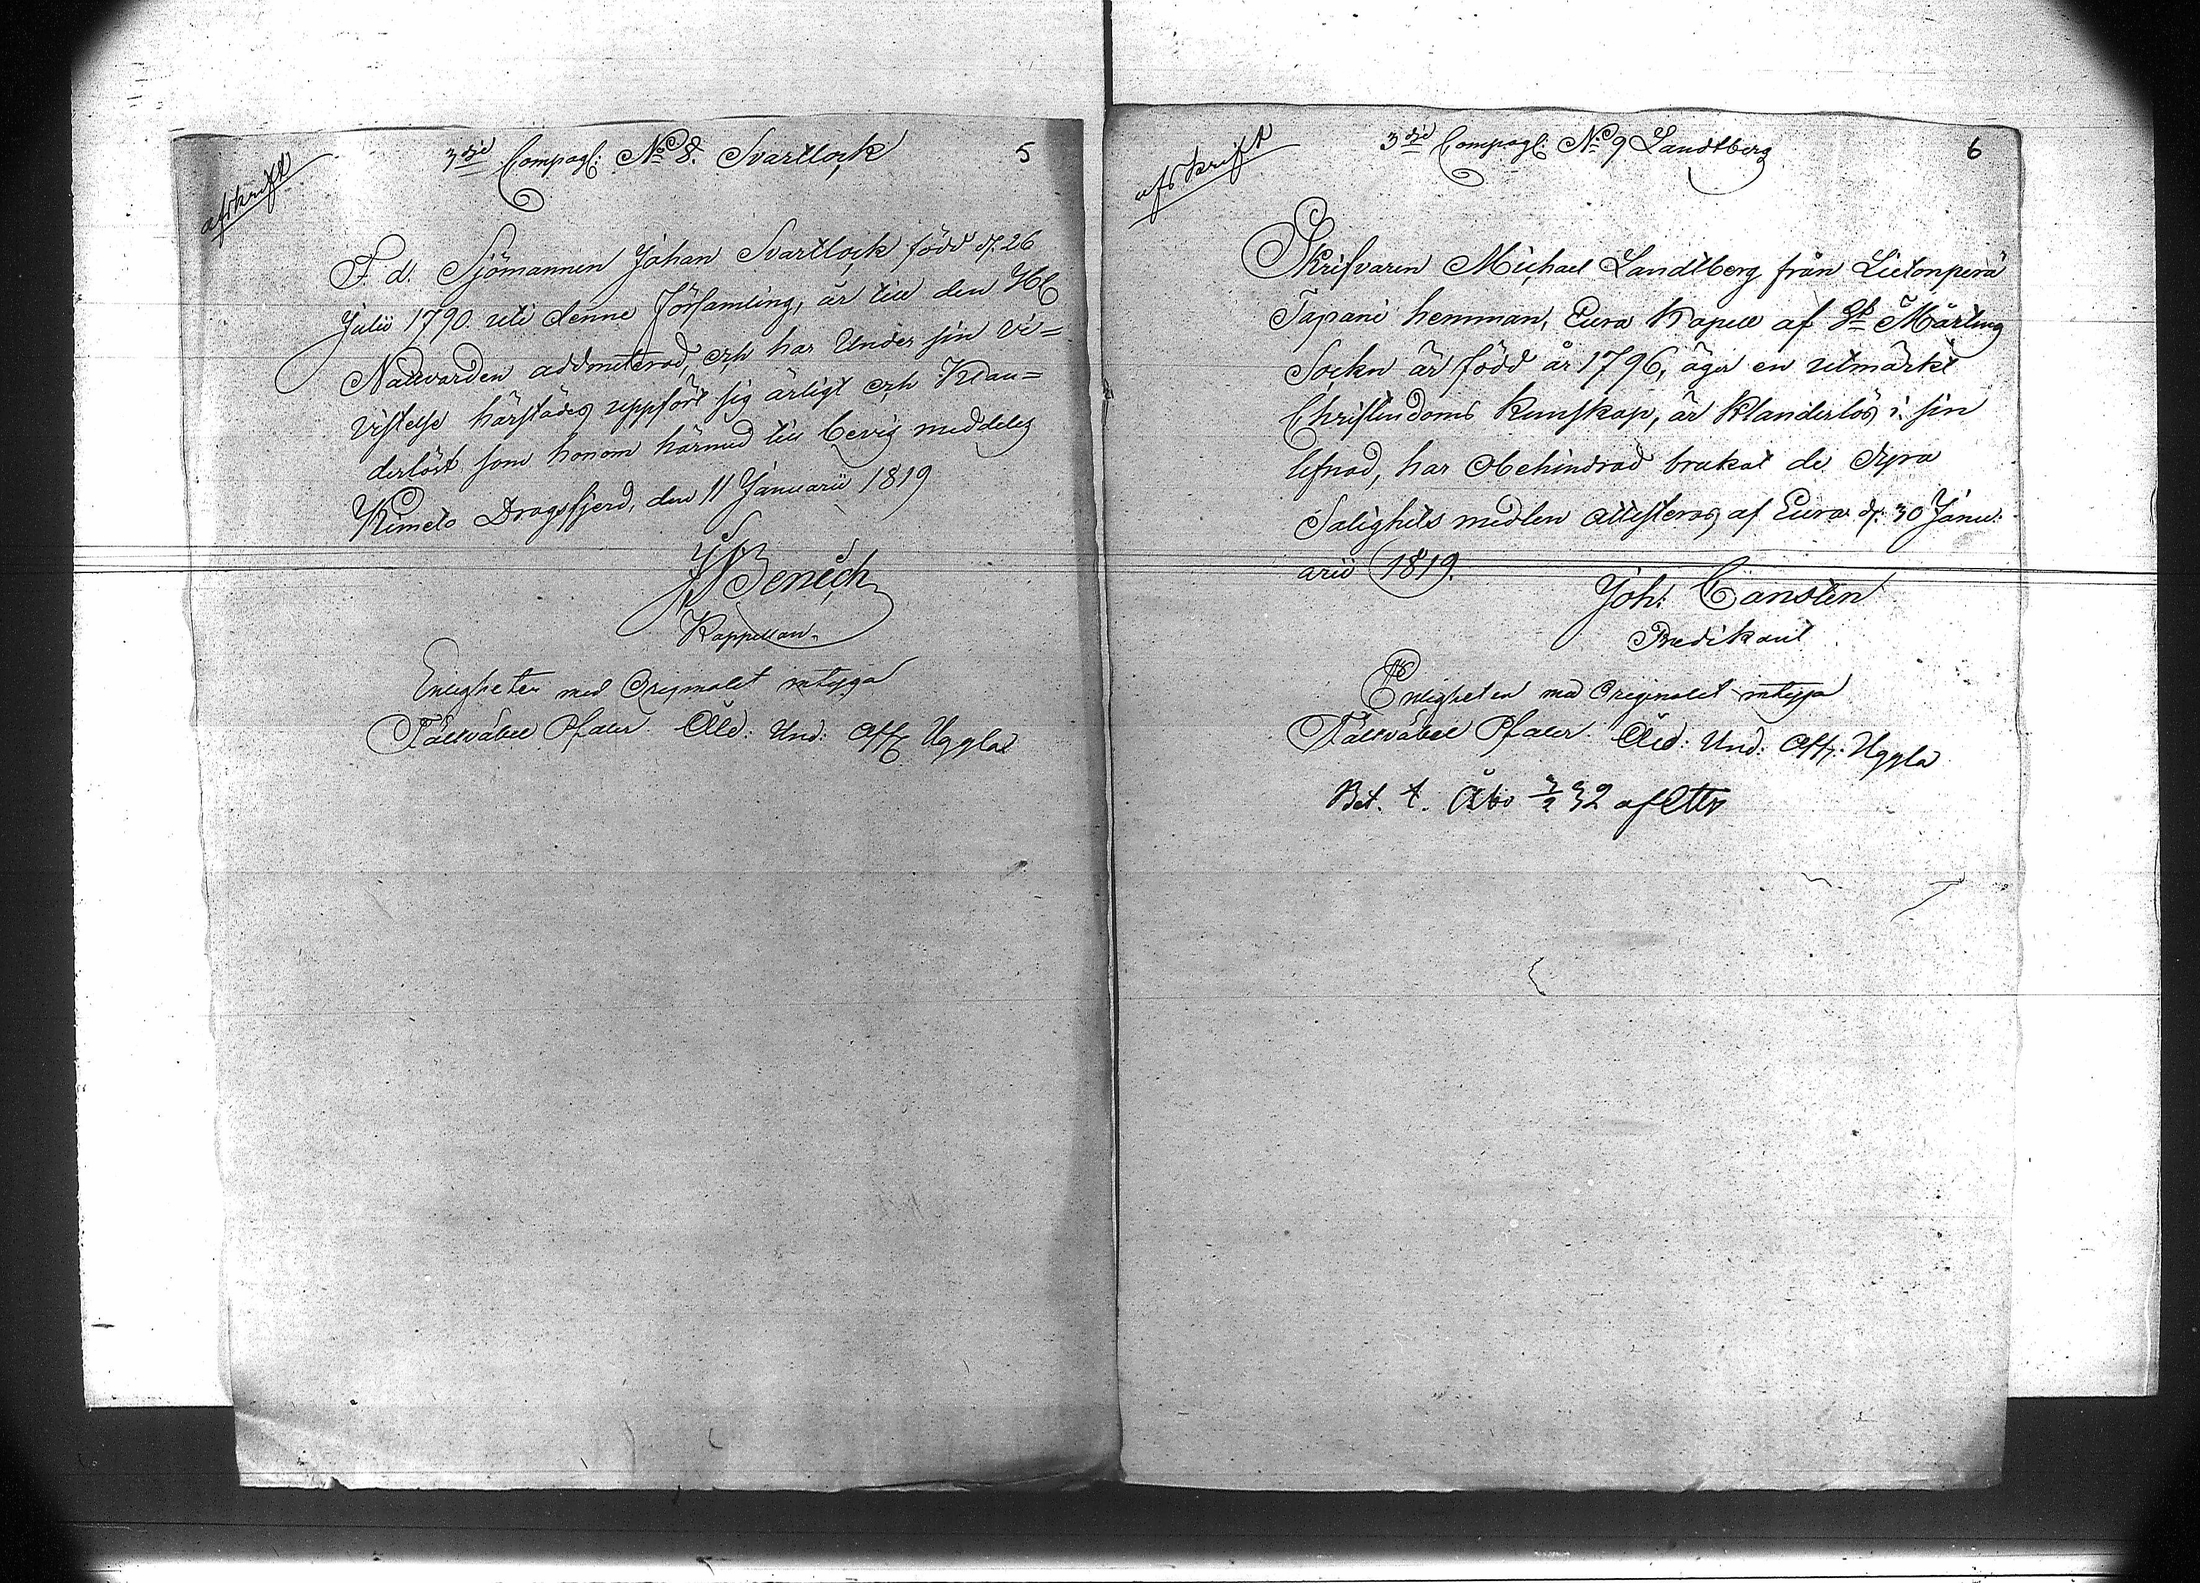 afskrift
3dje Compagl: No 8. Svartlock
5
F. d. Sjömannen Johan Svartlock född d. 26
Julii 1790. uti denne Församling, är till den Hl
Nattvarden admitterad, och har Under sin vi=
vistelse härstädes uppfört sig ärligt och Klan=
derlöst som honom härmed till bevis meddeles
Kimito Dragsfjerd, den 11 Januarii 1819
Kappellan.
Enligheten med Originalet intyga
Fältväbel Pfaler Åld: Und: Aff: Uggla
afskrift
3dje Compagl: No 9 Landtberg
6
Skrifvaren Michael Landtberg från Lietonperä
Tapani hemman, Eura Kapell af St Mårtins
Sockn är född år 1796, äger en utmärkt
Christendoms Kunskap, är Klanderlös i sin
lefnad, har obehindrad brukat de dyra
Salighets medlen attesteras af Eura d. 30 Janu:
arii 1819.
Joh:
Predikant
Enligheten med Originalet intyga
Fältväbel Pfaler Åld: Und: Aff: Uggla
Bet. t. Åbo 3/2 32 af